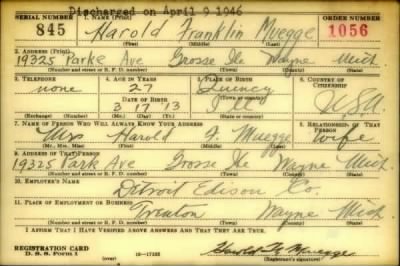 Discharged on April 9 1946
SERIAL NUMBER 1. NAME (Print) ORDER NUMBER
845 Harold Franklin Muegge 1056
(First) (Middle) (Last)
2. ADDRESS (Print)
19325 Parke Ave Grosse Ile Wayne Mich.
(Number and street or R. F. D. number) (Town) (County) (State)
3. TELEPHONE 4. AGE IN YEARS 5. PLACE OF BIRTH 6. COUNTRY OF CITIZENSHIP
none 27 Quincy
DATE OF BIRTH
3 17 '13 Ill U.S.A.
(Mo.) (Day) (Yr.) (State or country)
7. NAME OF PERSON WHO WILL ALWAYS KNOW YOUR ADDRESS 8. RELATIONSHIP OF THAT PERSON
Mrs Harold F. Muegge Wife
(Mr., Mrs., Miss) (First) (Middle) (Last)
9. ADDRESS OF THAT PERSON
19325 Park Ave Grosse Ile Wayne Mich.
(Number and street or R. F. D. number) (Town) (County) (State)
10. EMPLOYER'S NAME
Detroit Edison Co.
11. PLACE OF EMPLOYMENT OR BUSINESS
Trenton Wayne Mich
(Number and street or R. F. D. number) (Town) (County) (State)
I AFFIRM THAT I HAVE VERIFIED ABOVE ANSWERS AND THAT THEY ARE TRUE.
REGISTRATION CARD
D. S. S. Form 1 16—17105 Harold F. Muegge
(Registrant's signature)